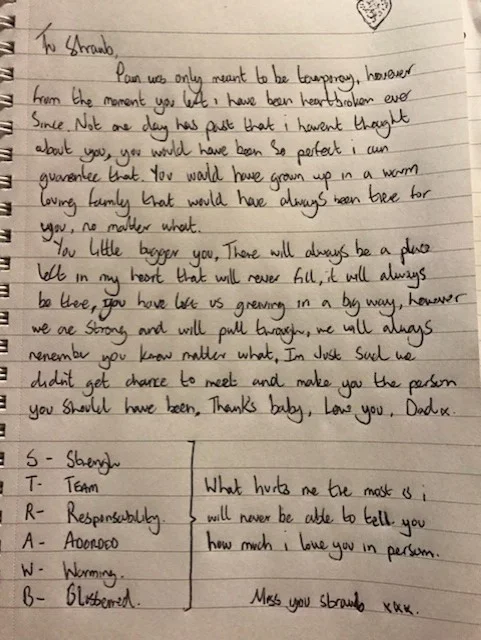 To Strawb,
Pain was only meant to be temporay, however
from the moment you left i have been heartbroken ever
Since. Not one day has past that i havent thought
about you, you would have been So perfect i can
guarentee that. You would have grown up in a warm
loving family that would have always been there for
you, no matter what.
You little bigger you, There will always be a place
left in my heart that will never fill, it will always
be there, you have left us greiving in a big way, however
we are Strong and will pull through, we will always
remember you know matter what, Im Just Sad we
didnt get chance to meet and make you the person
you Should have been, Thanks baby, Love you, Dad x.
S - Strength
T - TEAM
R - Responsability.
A - ADORED
W - Warming.
B -
What hurts me the most is i
will never be able to tell you
how much i love you in person.
Miss you strawb xxx.